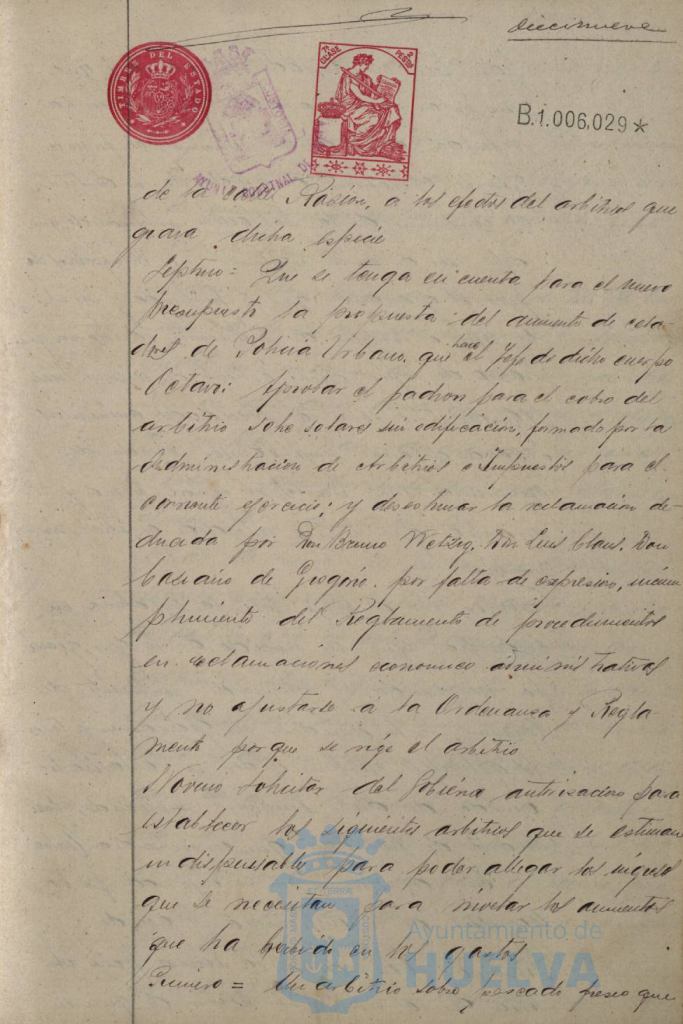 diecinueve
TIMBRE DEL ESTADO
7ª CLASE
2 PESETAS
B.1.006,029*
de la Racion, a los efectos del arbitrios que
grava dicha especie
Septimo = Que se tenga en cuenta para el nuevo
presupuesto la propuesta del aumento de cela-
dores de Policia Urbana, que hace el Jefe de dicho cuerpo
Octavo: Aprobar el padron para el cobro del
arbitrio sobre solares sin edificación, formado por la
Administracion de Arbitrios e Impuestos para el
corriente ejercicio; y desestimar la reclamación de-
ducida por Don Bruno Wetzig, Don Luis Claus, Don
Casiano de Gregorio, por falta de expresion, incum
plimiento del Reglamento de procedimientos
en reclamaciones economico administrativas
y no ajustarse a la Ordenanza y Regla-
mento porque se rige el arbitrio
Noveno Solicitar del Gobierno autorizacion para
establecer los siguientes arbitrios que se estiman
indispensables para poder allegar los ingresos
que se necesitan para nivelar los aumentos
que ha habido en los gastos
Primero = Un arbitrio sobre pescado fresco que
Ayuntamiento de
HUELVA